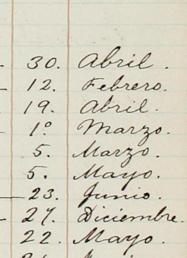 30. Abril.
12. Febrero.
19. Abril.
1º Marzo.
5. Marzo.
5. Mayo.
23. Junio.
27. Diciembre.
22. Mayo.